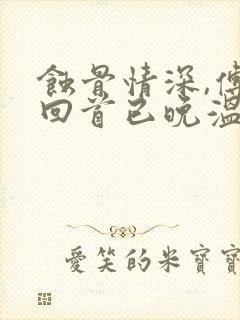 蝕骨情深,傅
回首已晚溫
愛笑的米寶寶